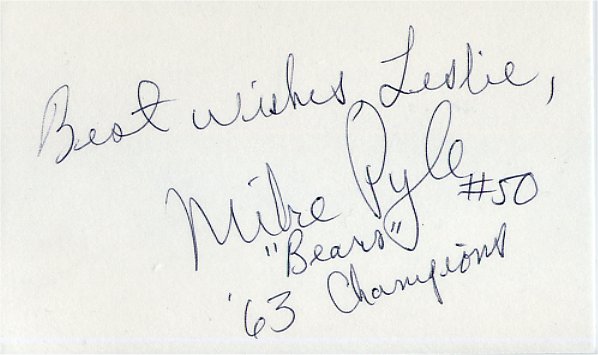 Best wishes Leslie,
Mike Pyle #50
"Bears"
'63 Champions